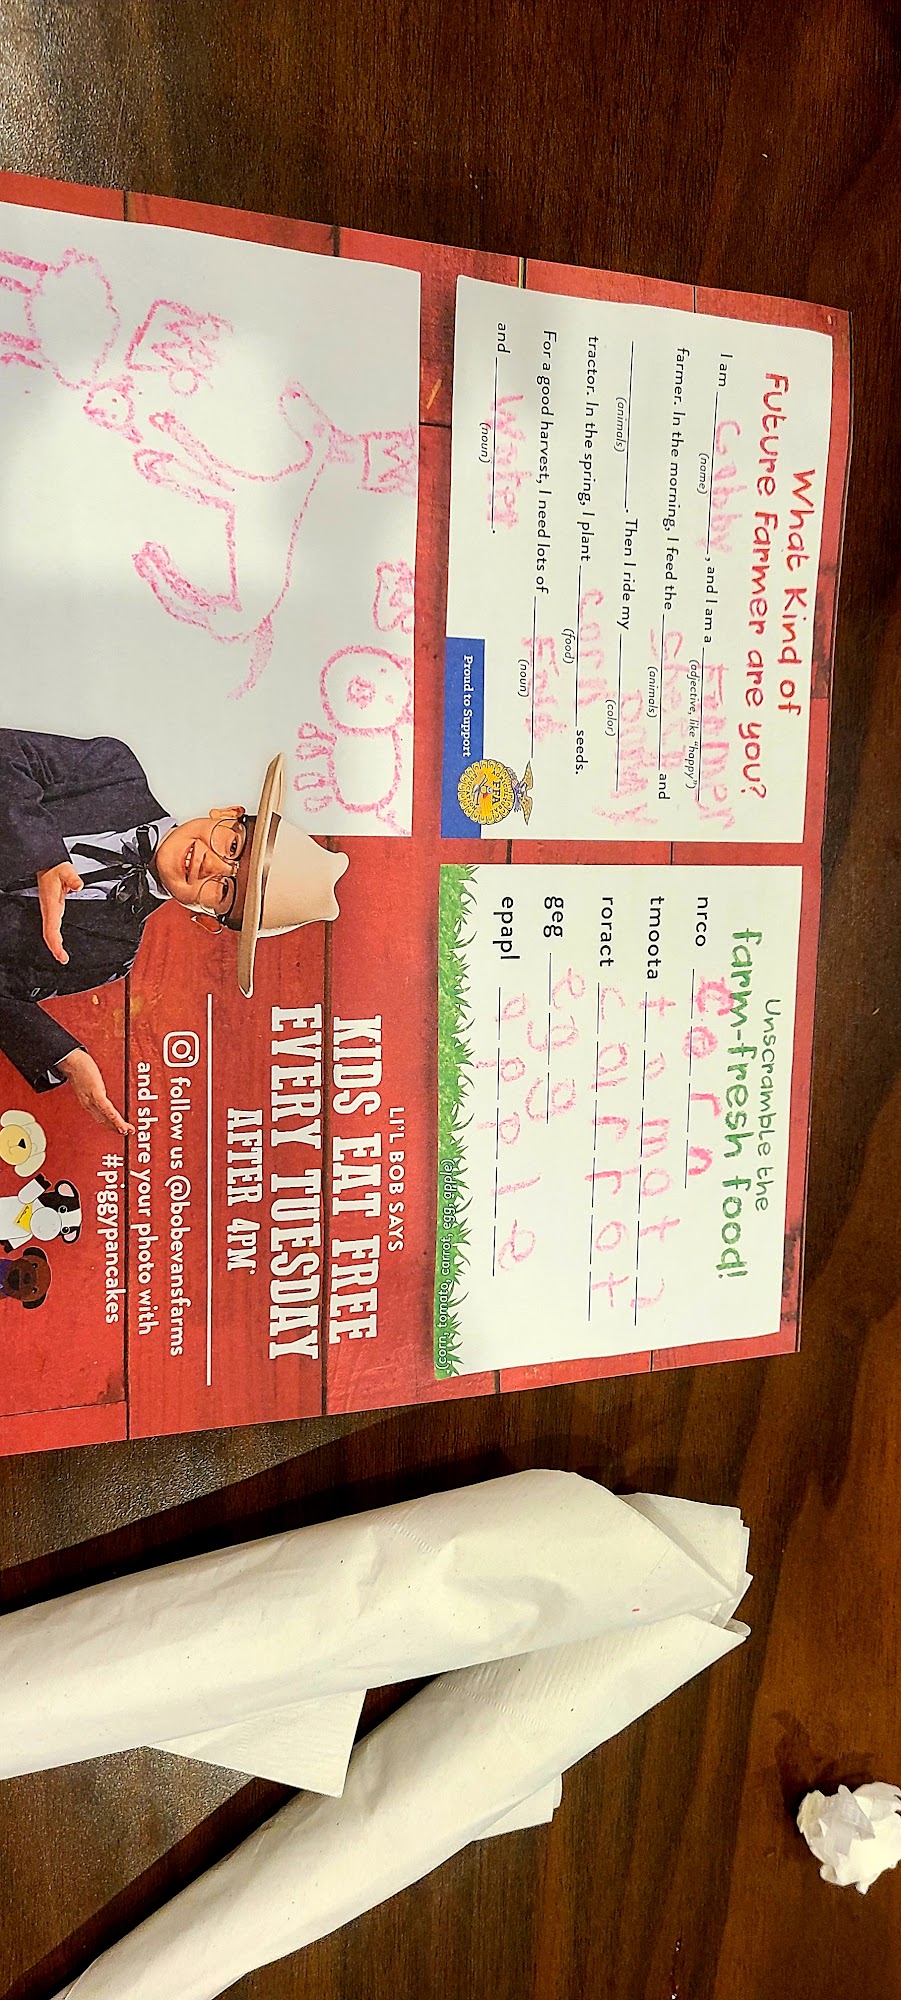 What Kind of
Future Farmer are you?
I am Gabby, and I am a Farmer
(name) (adjective, like "happy")
farmer. In the morning, I feed the and
(animals)
. Then I ride my
(animals) (color)
tractor. In the spring, I plant corn seeds.
(food)
For a good harvest, I need lots of
(noun)
and water.
(noun)
Proud to Support
FFA
Unscramble the
farm-fresh food!
nrco corn
tmoota
roract carrot
geg egg
epapl apple
(corn, tomato, carrot, egg, apple)
LI'L BOB SAYS
KIDS EAT FREE
EVERY TUESDAY
AFTER 4PM*
follow us @bobevansfarms
and share your photo with
#piggypancakes